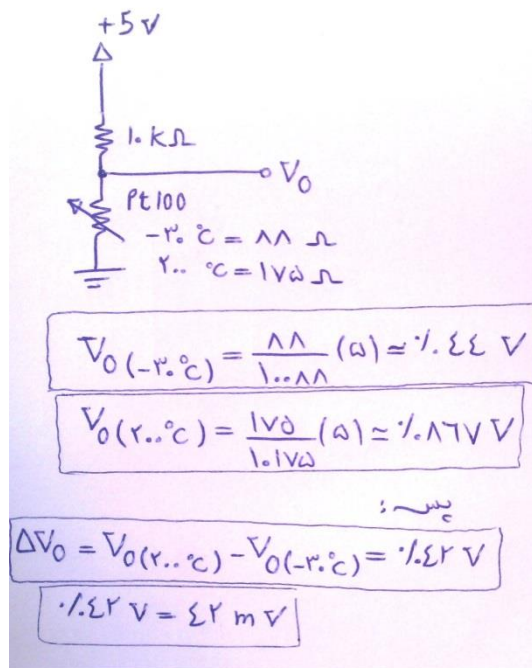 +5 V
۱۰ kΩ
V₀
Pt100
-۳۰ °C = ۸۸ Ω
۲۰۰ °C = ۱۷۵ Ω
V₀(-۳۰°C) = ۸۸/۱۰۰۸۸ (۵) ≃ ۰/۰٤٤ V
V₀(۲۰۰°C) = ۱۷۵/۱۰۱۷۵ (۵) ≃ ۰/۰۸٦۷ V
پس:
ΔV₀ = V₀(۲۰۰°C) - V₀(-۳۰°C) = ۰/۰٤۲ V
۰/۰٤۲ V = ٤۲ m V